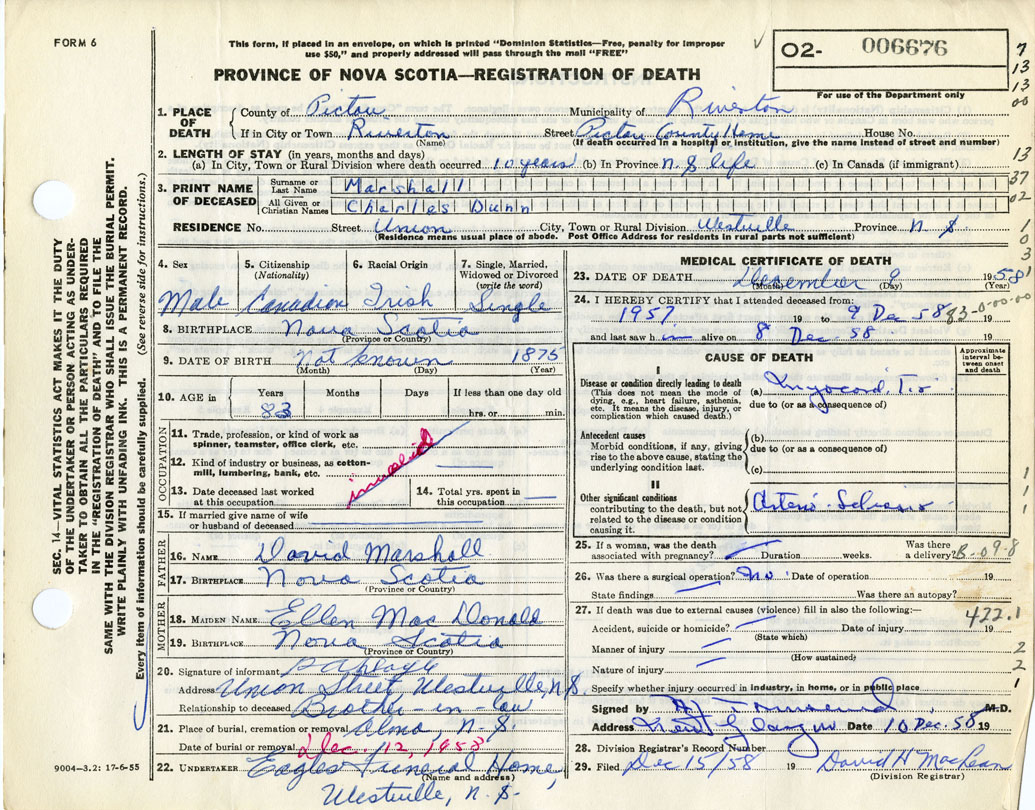 FORM 6
This form, if placed in an envelope, on which is printed "Dominion Statistics—Free, penalty for improper
use $50," and properly addressed will pass through the mail "FREE"
02- 006676
For use of the Department only
PROVINCE OF NOVA SCOTIA—REGISTRATION OF DEATH
7
13
13
00
13
37
02
1
0
3
1
1. PLACE OF DEATH
County of Pictou Municipality of Riverton
If in City or Town Riverton Street Pictou County Home House No.
(Name) (If death occurred in a hospital or institution, give the name instead of street and number)
2. LENGTH OF STAY (in years, months and days)
(a) In City, Town or Rural Division where death occurred 10 years (b) In Province N.S life (c) In Canada (if immigrant)
3. PRINT NAME OF DECEASED
Surname or Last Name Marshall
All Given or Christian Names Charles Dunn
RESIDENCE No. Street Union City, Town or Rural Division Westville Province N S
(Residence means usual place of abode. Post Office Address for residents in rural parts not sufficient)
SEC. 14—VITAL STATISTICS ACT MAKES IT THE DUTY
OF THE UNDERTAKER OR PERSON ACTING AS UNDER-
TAKER TO OBTAIN ALL THE PARTICULARS REQUIRED
IN THE "REGISTRATION OF DEATH" AND TO FILE THE
SAME WITH THE DIVISION REGISTRAR WHO SHALL ISSUE THE BURIAL PERMIT.
WRITE PLAINLY WITH UNFADING INK. THIS IS A PERMANENT RECORD.
Every item of information should be carefully supplied. (See reverse side for instructions.)
4. Sex 5. Citizenship (Nationality) 6. Racial Origin 7. Single, Married, Widowed or Divorced (write the word)
Male Canadian Irish Single
8. BIRTHPLACE Nova Scotia
(Province or Country)
9. DATE OF BIRTH Not known 1875
(Month) (Day) (Year)
10. AGE in Years Months Days If less than one day old
83 hrs. or min.
OCCUPATION
11. Trade, profession, or kind of work as
spinner, teamster, office clerk, etc.
12. Kind of industry or business, as cotton-
mill, lumbering, bank, etc.
invalid
13. Date deceased last worked
at this occupation
14. Total yrs. spent in
this occupation
15. If married give name of wife
or husband of deceased
FATHER
16. NAME David Marshall
17. BIRTHPLACE Nova Scotia
(Province or Country)
MOTHER
18. MAIDEN NAME Ellen Mac Donald
19. BIRTHPLACE Nova Scotia
(Province or Country)
20. Signature of informant
Address Union Street Westville, N.S.
Relationship to deceased Brother-in-law
21. Place of burial, cremation or removal Alma N.S.
Date of burial or removal Dec. 12, 1958
22. UNDERTAKER Eagles Funeral Home,
(Name and address)
Westville, N.S.
9004-3.2: 17-6-55
MEDICAL CERTIFICATE OF DEATH
23. DATE OF DEATH December 9 1958
(Month) (Day) (Year)
24. I HEREBY CERTIFY that I attended deceased from:
1957 19 to 9 Dec 58 19
83-0-00-00
and last saw him alive on 8 Dec. 58 19
CAUSE OF DEATH
Approximate interval between onset and death
I
Disease or condition directly leading to death
(This does not mean the mode of
dying, e.g., heart failure, asthenia,
etc. It means the disease, injury, or
complication which caused death.)
(a)
due to (or as a consequence of)
Antecedent causes
Morbid conditions, if any, giving
rise to the above cause, stating the
underlying condition last.
(b)
due to (or as a consequence of)
(c)
II
Other significant conditions
contributing to the death, but not
related to the disease or condition
causing it.
1
1
1
25. If a woman, was the death
associated with pregnancy? Duration weeks. Was there
a delivery?
B-09-8
26. Was there a surgical operation? No Date of operation 19
State findings Was there an autopsy?
27. If death was due to external causes (violence) fill in also the following:—
422.1
Accident, suicide or homicide? Date of injury 19
(State which)
Manner of injury 2
(How sustained)
Nature of injury 2
Specify whether injury occurred in industry, in home, or in public place 1
Signed by M.D.
Address New Glasgow Date 10 Dec. 58 19
28. Division Registrar's Record Number
29. Filed Dec 15/58 19 David H MacLean
(Division Registrar)